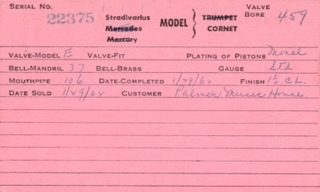 SERIAL NO. 22375 Stradivarius Mercedes Mercury MODEL TRUMPET CORNET VALVE BORE 459
VALVE-MODEL E VALVE-FIT PLATING OF PISTONS Monel
BELL-MANDRIL 37 BELL-BRASS GAUGE Std
MOUTHPIPE 106 DATE-COMPLETED 1/29/62 FINISH 1½ C.L.
DATE SOLD 1/29/62 CUSTOMER Palmer Music House